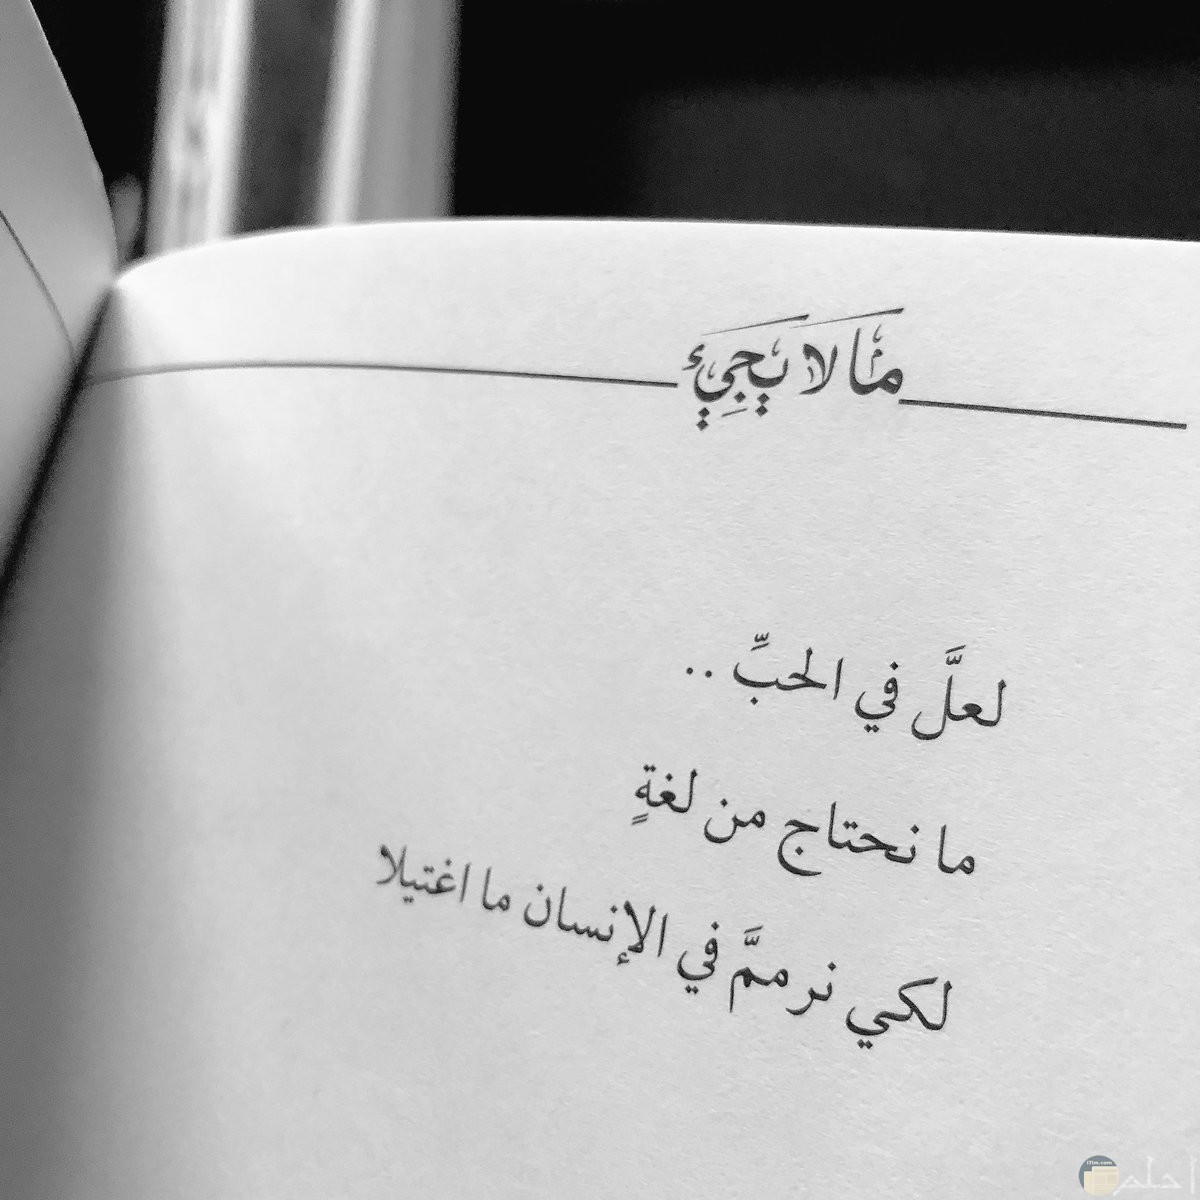 مَا لا يَجِيء
لعلَّ في الحبِّ ..
ما نحتاج من لغةٍ
لكي نرممَّ في الإنسان ما اغتيلا
i7lm.com
احلم